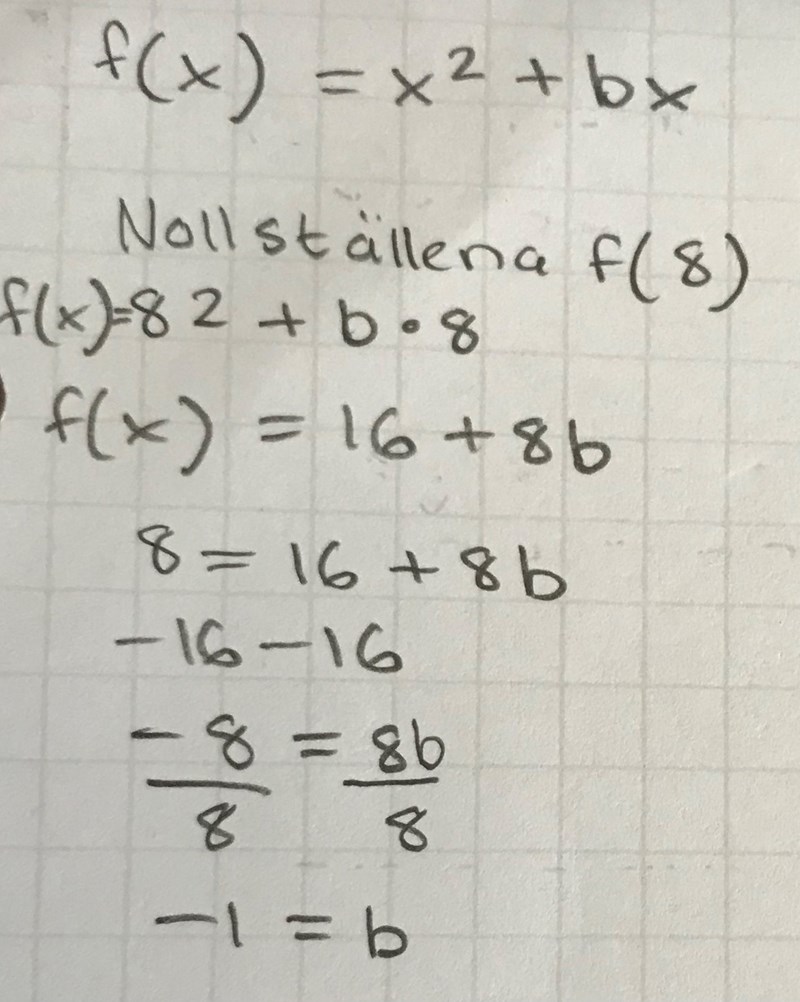 f(x) = x² + bx
Nollställena f(8)
f(x)=82 + b•8
f(x) = 16 + 8b
8 = 16 + 8b
-16 -16
-8 = 8b
8 8
-1 = b